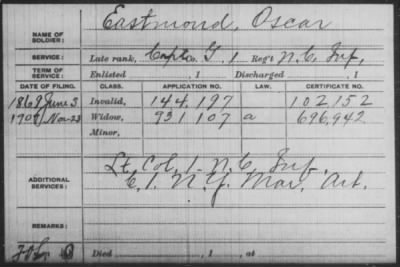 Eastmond, Oscar
NAME OF SOLDIER:
SERVICE: Late rank, Capt Co. G, 1 Reg't N.C. Inf,
TERM OF SERVICE: Enlisted , 1 Discharged , 1
DATE OF FILING. CLASS. APPLICATION NO. LAW. CERTIFICATE NO.
1869 June 3 Invalid, 144,197 102152
Nov-23 Widow, 931,107 a 696,942
Minor,
ADDITIONAL SERVICES: Lt. Col. 1. N.C. Inf.
C. 1. N.Y. Mar. Art.
REMARKS:
Died , 1 , at